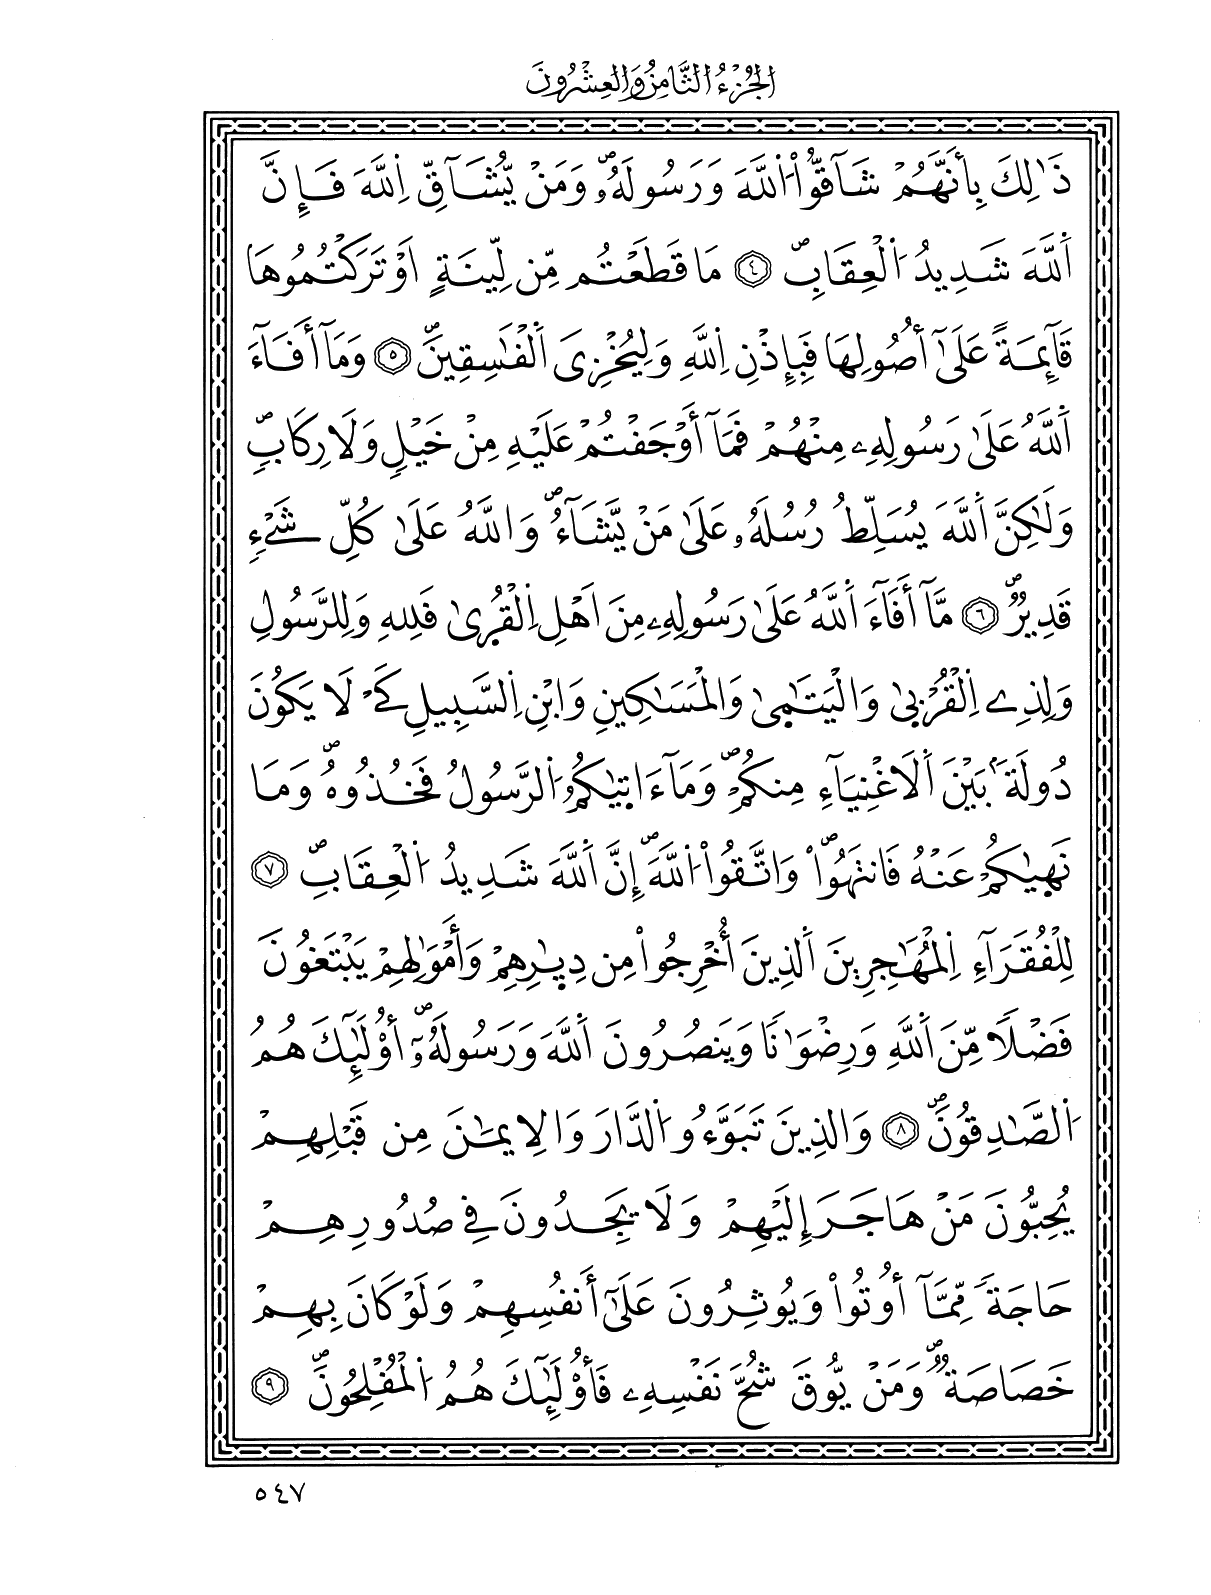 الجُزْءُ الثَّامِنُ وَالعِشْرُونَ
ذَٰلِكَ بِأَنَّهُمْ شَآقُّواْ اُللَّهَ وَرَسُولَهُۥۖ وَمَنْ يُّشَآقِّ اِللَّهَ فَإِنَّ
اَللَّهَ شَدِيدُ اُلْعِقَابِۖ ٤ مَا قَطَعْتُم مِّن لِّينَةٍ اَوْ تَرَكْتُمُوهَا
قَآئِمَةً عَلَىٰٓ أُصُولِهَا فَبِإِذْنِ اِللَّهِ وَلِيُخْزِىَ اَلْفَٰسِقِينَۖ ٥ وَمَآ أَفَآءَ
اَللَّهُ عَلَىٰ رَسُولِهِۦ مِنْهُمْ فَمَآ أَوْجَفْتُمْ عَلَيْهِ مِنْ خَيْلٍ وَلَا رِكَابٍۖ
وَلَٰكِنَّ اَللَّهَ يُسَلِّطُ رُسُلَهُۥ عَلَىٰ مَنْ يَّشَآءُۖ وَاللَّهُ عَلَىٰ كُلِّ شَےْءٍ
قَدِيرٌۖ ٦ مَّآ أَفَآءَ اَللَّهُ عَلَىٰ رَسُولِهِۦ مِنَ اَهْلِ اِلْقُرٜىٰ فَلِلهِ وَلِلرَّسُولِ
وَلِذِے اِلْقُرْبٜىٰ وَالْيَتَٰمٜىٰ وَالْمَسَٰكِينِ وَابْنِ اِلسَّبِيلِ كَےْ لَا يَكُونَ
دُولَةَۢ بَيْنَ اَلَاغْنِيَآءِ مِنكُمْۖ وَمَآ ءَاتٜيٰكُمُ اُلرَّسُولُ فَخُذُوهُۖ وَمَا
نَهٜيٰكُمْ عَنْهُ فَانتَهُواْۖ وَاتَّقُواْ اُللَّهَۖ إِنَّ اَللَّهَ شَدِيدُ اُلْعِقَابِۖ ٧
لِلْفُقَرَآءِ اِلْمُهَٰجِرِينَ اَلذِينَ أُخْرِجُواْ مِن دِيٰٜرِهِمْ وَأَمْوَٰلِهِمْ يَبْتَغُونَ
فَضْلًا مِّنَ اَللَّهِ وَرِضْوَٰنًا وَيَنصُرُونَ اَللَّهَ وَرَسُولَهُۥٓۖ أُوْلَٰٓئِكَ هُمُ
اُلصَّٰدِقُونَۖ ٨ وَالذِينَ تَبَوَّءُو اُلدَّارَ وَالِايمَٰنَ مِن قَبْلِهِمْ
يُحِبُّونَ مَنْ هَاجَرَ إِلَيْهِمْ وَلَا يَجِدُونَ فِي صُدُورِهِمْ
حَاجَةً مِّمَّآ أُوتُواْ وَيُوثِرُونَ عَلَىٰٓ أَنفُسِهِمْ وَلَوْ كَانَ بِهِمْ
خَصَاصَةٌۖ وَمَنْ يُّوقَ شُحَّ نَفْسِهِۦ فَأُوْلَٰٓئِكَ هُمُ اُلْمُفْلِحُونَۖ ٩
٥٤٧